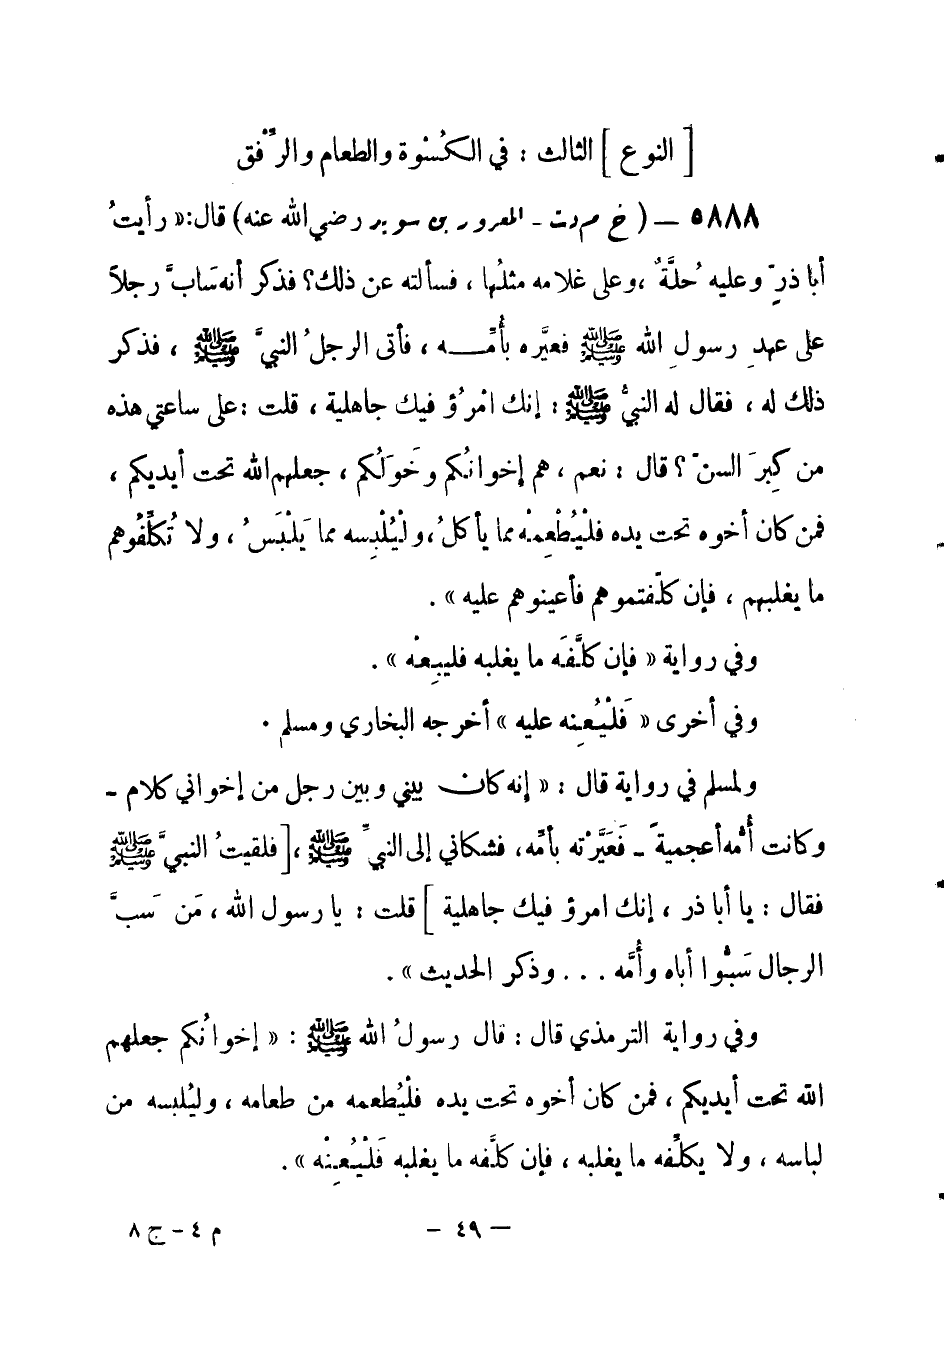 [ النوع ] الثالث : في الكُسْوة والطعام والرِّفْق
٥٨٨٨ — ( خ م د ت - المعرور بن سويد رضي الله عنه) قال: « رأيتُ
أبا ذرٍّ وعليه حُلَّةٌ ، وعلى غلامه مثلُها ، فسألته عن ذلك؟ فذكر أنه سَابَّ رجلاً
على عهدِ رسولِ الله ﷺ فعيَّره بأُمِّـــه ، فأتى الرجلُ النبيَّ ﷺ ، فذكر
ذلك له ، فقال له النبيُّ ﷺ : إنك امْرُؤ فيك جاهلية ، قلت : على ساعتي هذه
من كِبَرِ السنّ ؟ قال : نعم ، هم إخوانُكم وخَوَلُكم ، جعلهم الله تحت أيديكم ،
فمن كان أخوه تحت يده فلْيُطْعِمْه مما يأكلُ ، ولْيُلْبِسه مما يَلْبَسُ ، ولا تُكلِّفُوهم
ما يغلبهم ، فإن كلّفتموهم فأعينوهم عليه » .
وفي رواية « فإن كلَّفَه ما يغلبه فليبِعْه » .
وفي أخرى « فَلْيُعِنه عليه » أخرجه البخاري ومسلم .
ولمسلم في رواية قال : « إنه كان بيني وبين رجل من إخواني كلام -
وكانت أُمُّه أعجمية ً - فَعَيَّرْته بأمِّه ، فشكاني إلى النبيِّ ﷺ ، [ فلقيتُ النبيَّ ﷺ
فقال : يا أبا ذر ، إنك امرؤ فيك جاهلية ] قلت : يا رسول الله ، مَن سَبَّ
الرجال سَبُّوا أباه وأُمَّه . . . وذكر الحديث » .
وفي رواية الترمذي قال : قال رسولُ الله ﷺ : « إخوانُكم جعلهم
الله تحت أيديكم ، فمن كان أخوه تحت يده فلْيُطعمه من طعامه ، وليُلبسه من
لباسه ، ولا يكلِّفه ما يغلبه ، فإن كلَّفه ما يغلبه فَلْيُعِنْه » .
— ٤٩ — م ٤ - ج ٨